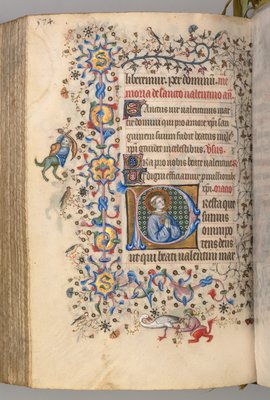 574.
liberemur. per dominum. me
moria de sancto valentino añ.
Sanctus vir valentinus mar
tir domini qui pro amore xpi san
guinem suum fudit
xpi gaudet in celestibus. Vers.
Ora pro nobis beate valentine
digni efficiamur
xpi. oratio
Presta que
sumus
omnipo
tens deus
ut qui beati valentini mar